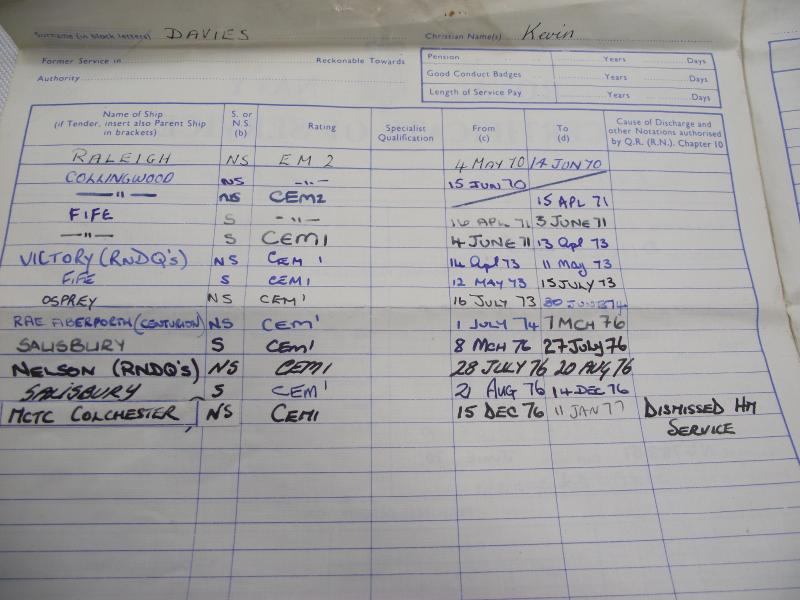 Surname (in block letters) DAVIES Christian Name(s) Kevin
Former Service in Reckonable Towards Pension Years Days
Authority Good Conduct Badges Years Days
Length of Service Pay Years Days
Name of Ship (if Tender, insert also Parent Ship in brackets) S. or N.S. (b) Rating Specialist Qualification From (c) To (d) Cause of Discharge and other Notations authorised by Q.R. (R.N.), Chapter 10
RALEIGH NS EM 2 4 MAY 70 14 JUN 70
COLLINGWOOD NS -"- 15 JUN 70
-"- NS CEM2 15 APL 71
FIFE S -"- 16 APL 71 3 JUNE 71
-"- S CEM1 4 JUNE 71 13 Apl 73
VICTORY (RNDQ's) NS CEM 1 14 Apl 73 11 May 73
FIFE S CEM1 12 MAY 73 15 JULY 73
OSPREY NS CEM' 16 JULY 73 30 JUNE 74
RAE ABERPORTH (CENTURION) NS CEM' 1 JULY 74 7 MCH 76
SALISBURY S CEM1 8 MCH 76 27 JULY 76
NELSON (RNDQ's) NS CEM1 28 JULY 76 20 AUG 76
SALISBURY S CEM' 21 AUG 76 14 DEC 76
MCTC COLCHESTER NS CEM1 15 DEC 76 11 JAN 77 DISMISSED HM
SERVICE